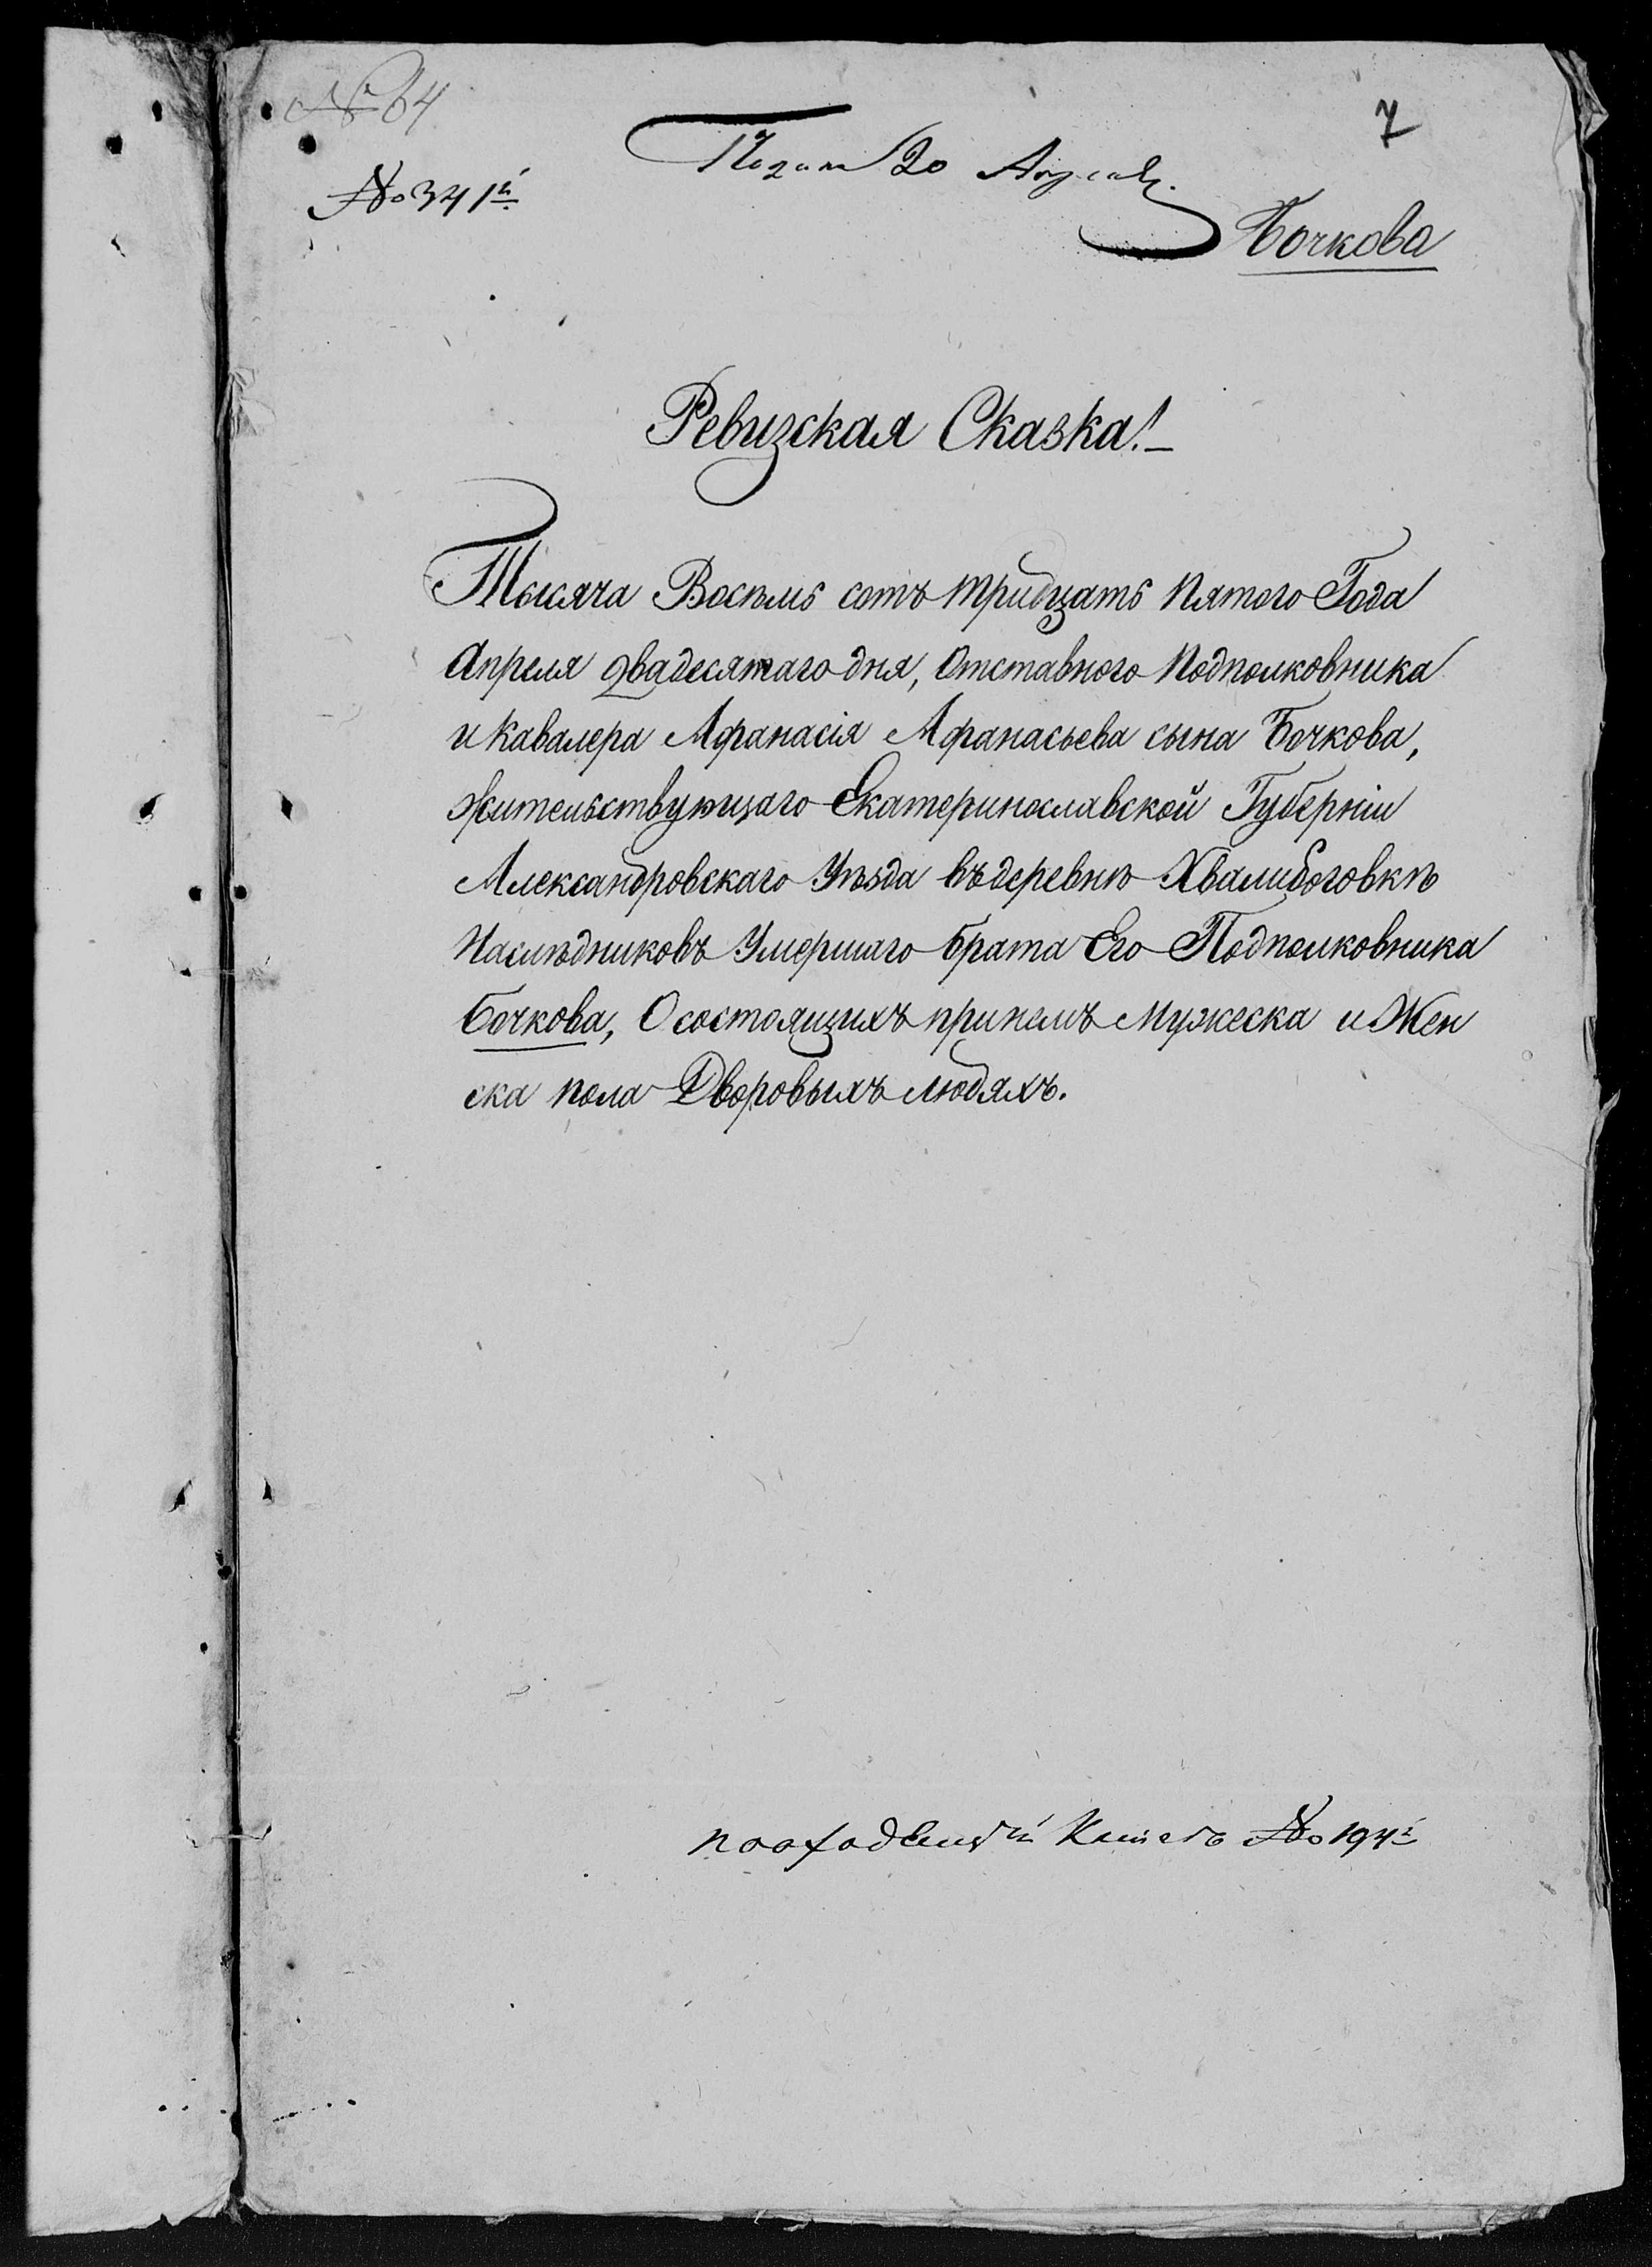 № 64
7
№ 341й
Подана 20 Апреля
Бочкова
Ревизская Сказка!
Тысяча Восемь сотъ тридцать пятого Года
Апреля двадесятаго дня, Отставного Подполковника
и Кавалера Афанасія Афанасьева сына Бочкова,
жительствующаго Екатеринославской Губерніи
Александровскаго Уѣзда въ деревнѣ Хвалибоговкѣ
Наслѣдниковъ Умершаго брата Его Подполковника
Бочкова, О состоящихъ при немъ Мужеска и Жен
ска пола Дворовыхъ людяхъ.
№ 194й